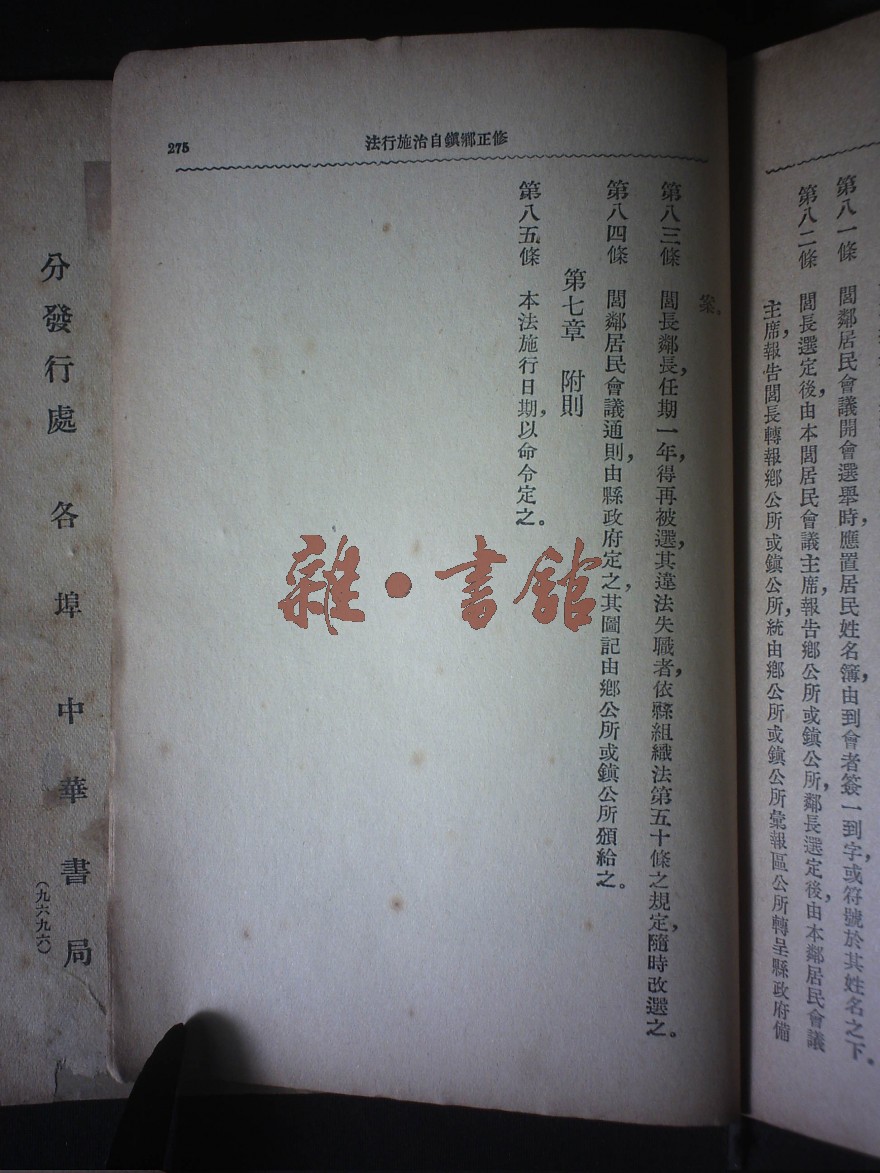 第八一條　閭鄰居民會議開會選舉時，應置居民姓名簿，由到會者簽一到字或符號於其姓名之下。
第八二條　閭長選定後，由本閭居民會議主席，報告鄉公所或鎮公所，鄰長選定後，由本鄰居民會議
主席，報告閭長轉報鄉公所或鎮公所，統由鄉公所或鎮公所彙報區公所轉呈縣政府備
275
修正鄉鎮自治施行法
案。
第八三條　閭長鄰長，任期一年，得再被選，其違法失職者，依縣組織法第五十條之規定，隨時改選之。
第八四條　閭鄰居民會議通則，由縣政府定之，其圖記由鄉公所或鎮公所頒給之。
第七章　附則
第八五條　本法施行日期，以命令定之。
雜·書館
分發行處　各埠中華書局
（九六九六）